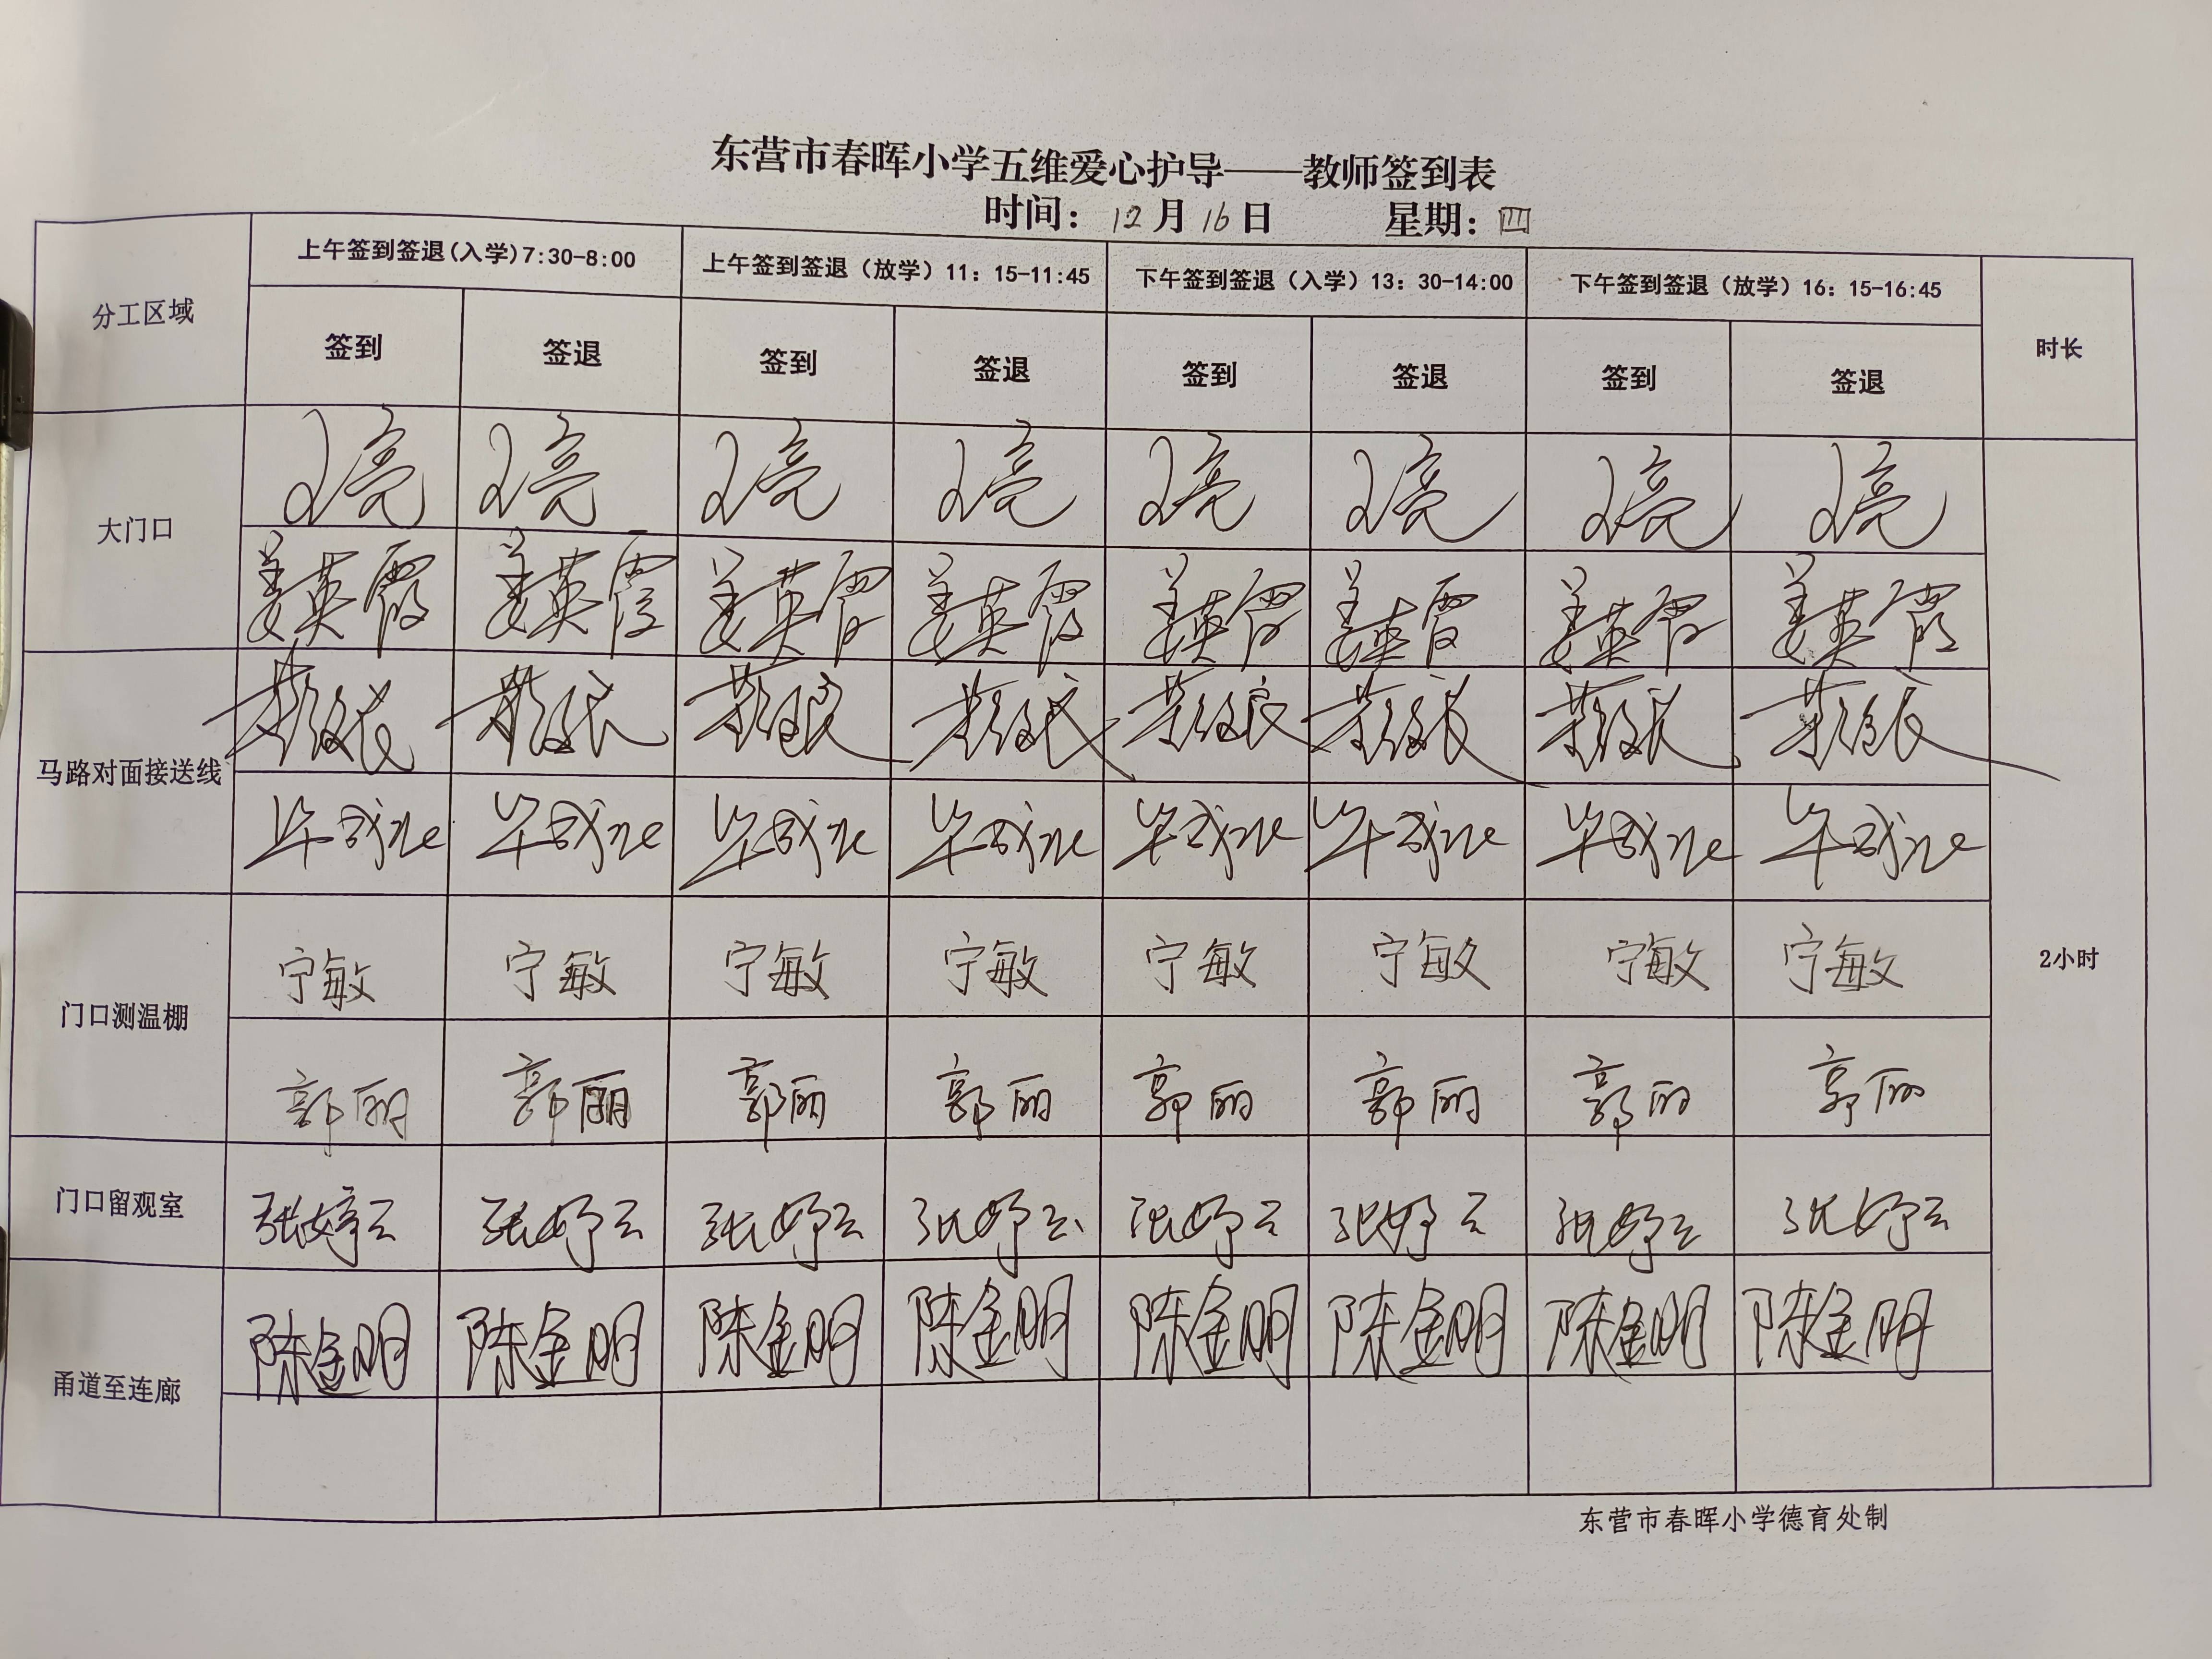 东营市春晖小学五维爱心护导——教师签到表
时间： 12 月 16 日 星期：四
分工区域 上午签到签退(入学)7:30-8:00 上午签到签退（放学）11：15-11:45 下午签到签退（入学）13：30-14:00 下午签到签退（放学）16：15-16:45 时长
签到 签退 签到 签退 签到 签退 签到 签退
大门口
王亮 王亮 王亮 王亮 王亮 王亮 王亮 王亮
姜英霞 姜英霞 姜英霞 姜英霞 姜英霞 姜英霞 姜英霞 姜英霞
马路对面接送线
门口测温棚 2小时
宁敏 宁敏 宁敏 宁敏 宁敏 宁敏 宁敏 宁敏
郭丽 郭丽 郭丽 郭丽 郭丽 郭丽 郭丽 郭丽
门口留观室 张婷云 张婷云 张婷云 张婷云 张婷云 张婷云 张婷云 张婷云
甬道至连廊 陈金明 陈金明 陈金明 陈金明 陈金明 陈金明 陈金明 陈金明
东营市春晖小学德育处制